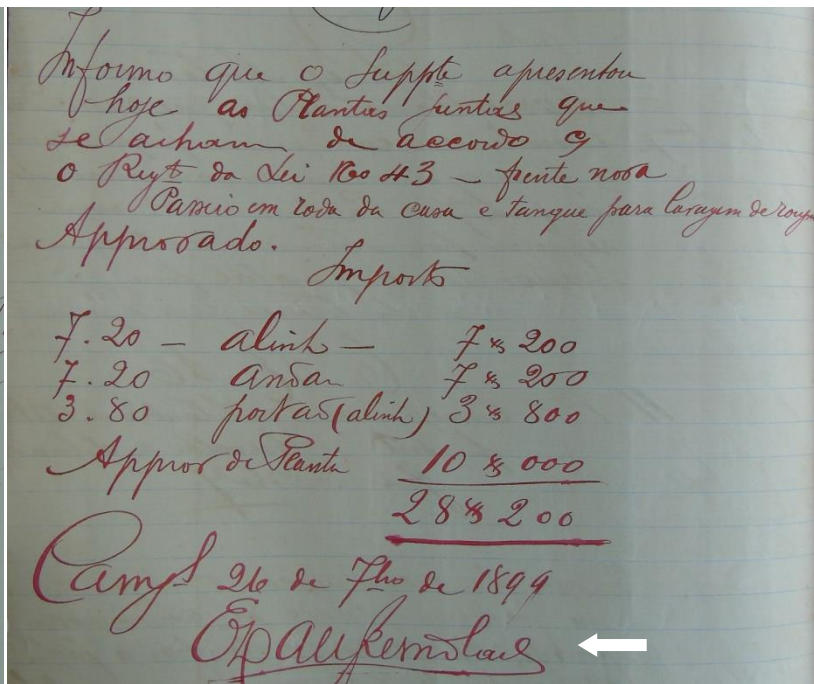 Informo que o Suppte apresentou
hoje as Plantas juntas que
se acham de accordo c/
o Regt da Lei No 43 – frente nova
Passeio em roda da casa e tanque para lavagem de roupa
Approvado.
Importe
7.20 – alinh – 7$200
7.20 andar 7$200
3.80 portão (alinh) 3$800
Approv de Planta 10$000
28$200
Camps 26 de 7bro de 1899